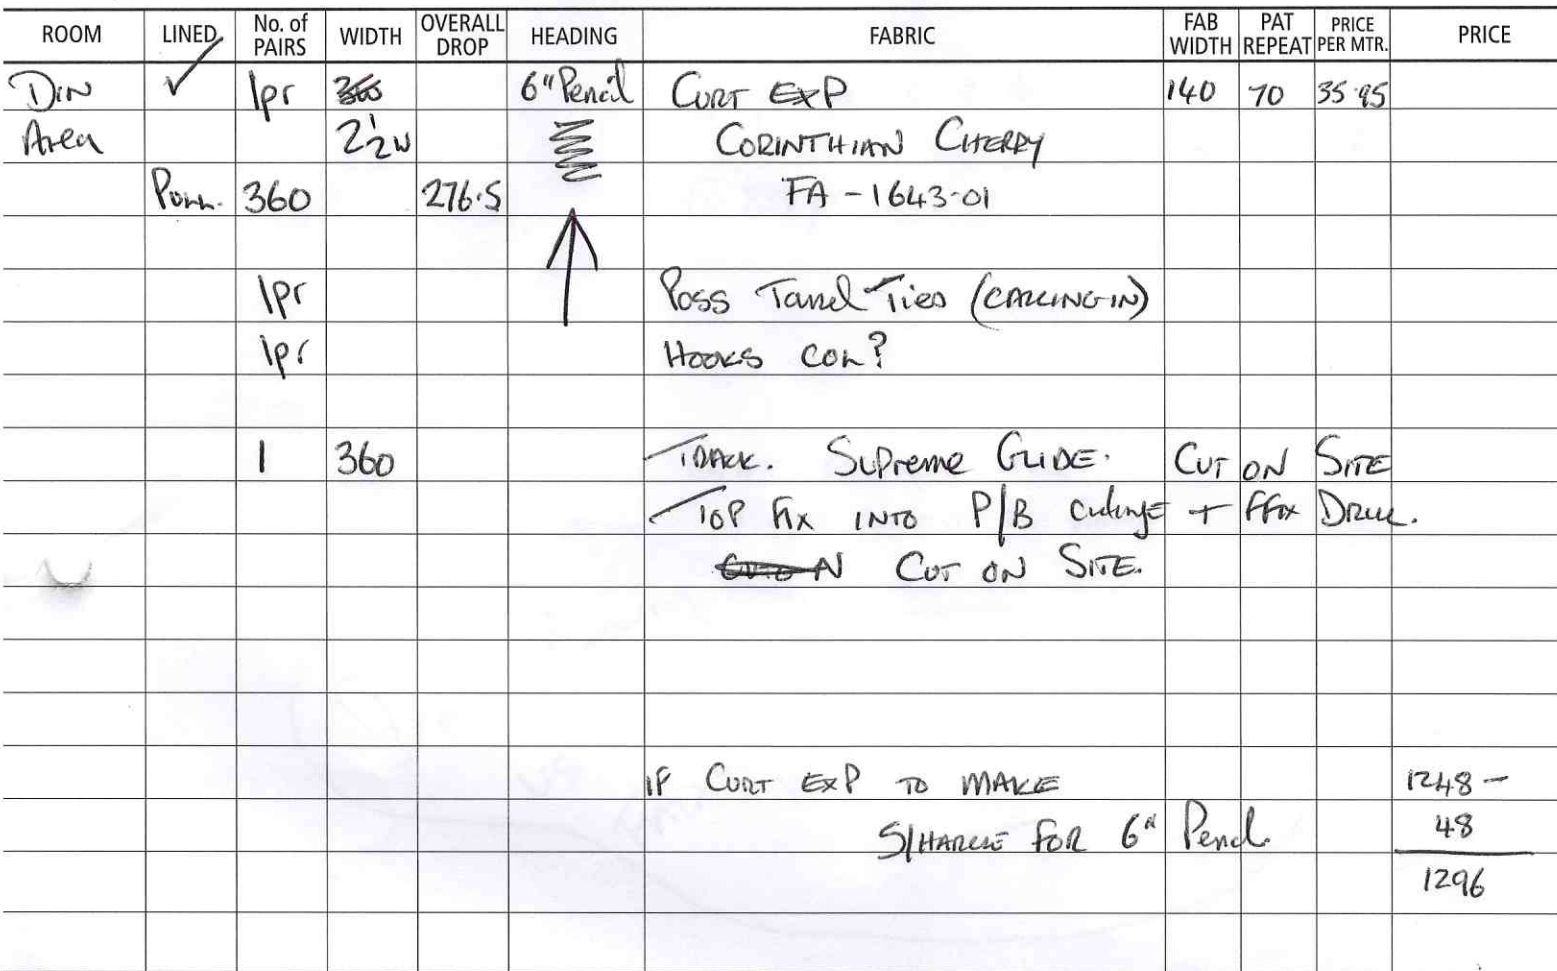 ROOM LINED No. of PAIRS WIDTH OVERALL DROP HEADING FABRIC FAB WIDTH PAT REPEAT PRICE PER MTR. PRICE
Din ✓ 1pr 360 6" Pencil CURT EXP 140 70 35.95
Area 2½w CORINTHIAN CHERRY
360 276.5 FA-1643-01
1pr Poss Tassel Ties (CALLING IN)
1pr HOOKS COL?
1 360 TRACK. Supreme GLIDE. CUT ON SITE
TOP FIX INTO P/B Ceiling + FFix
CUT ON SITE.
IF CURT EXP TO MAKE 1248-
S/HARGE FOR 6" Pencil 48
1296